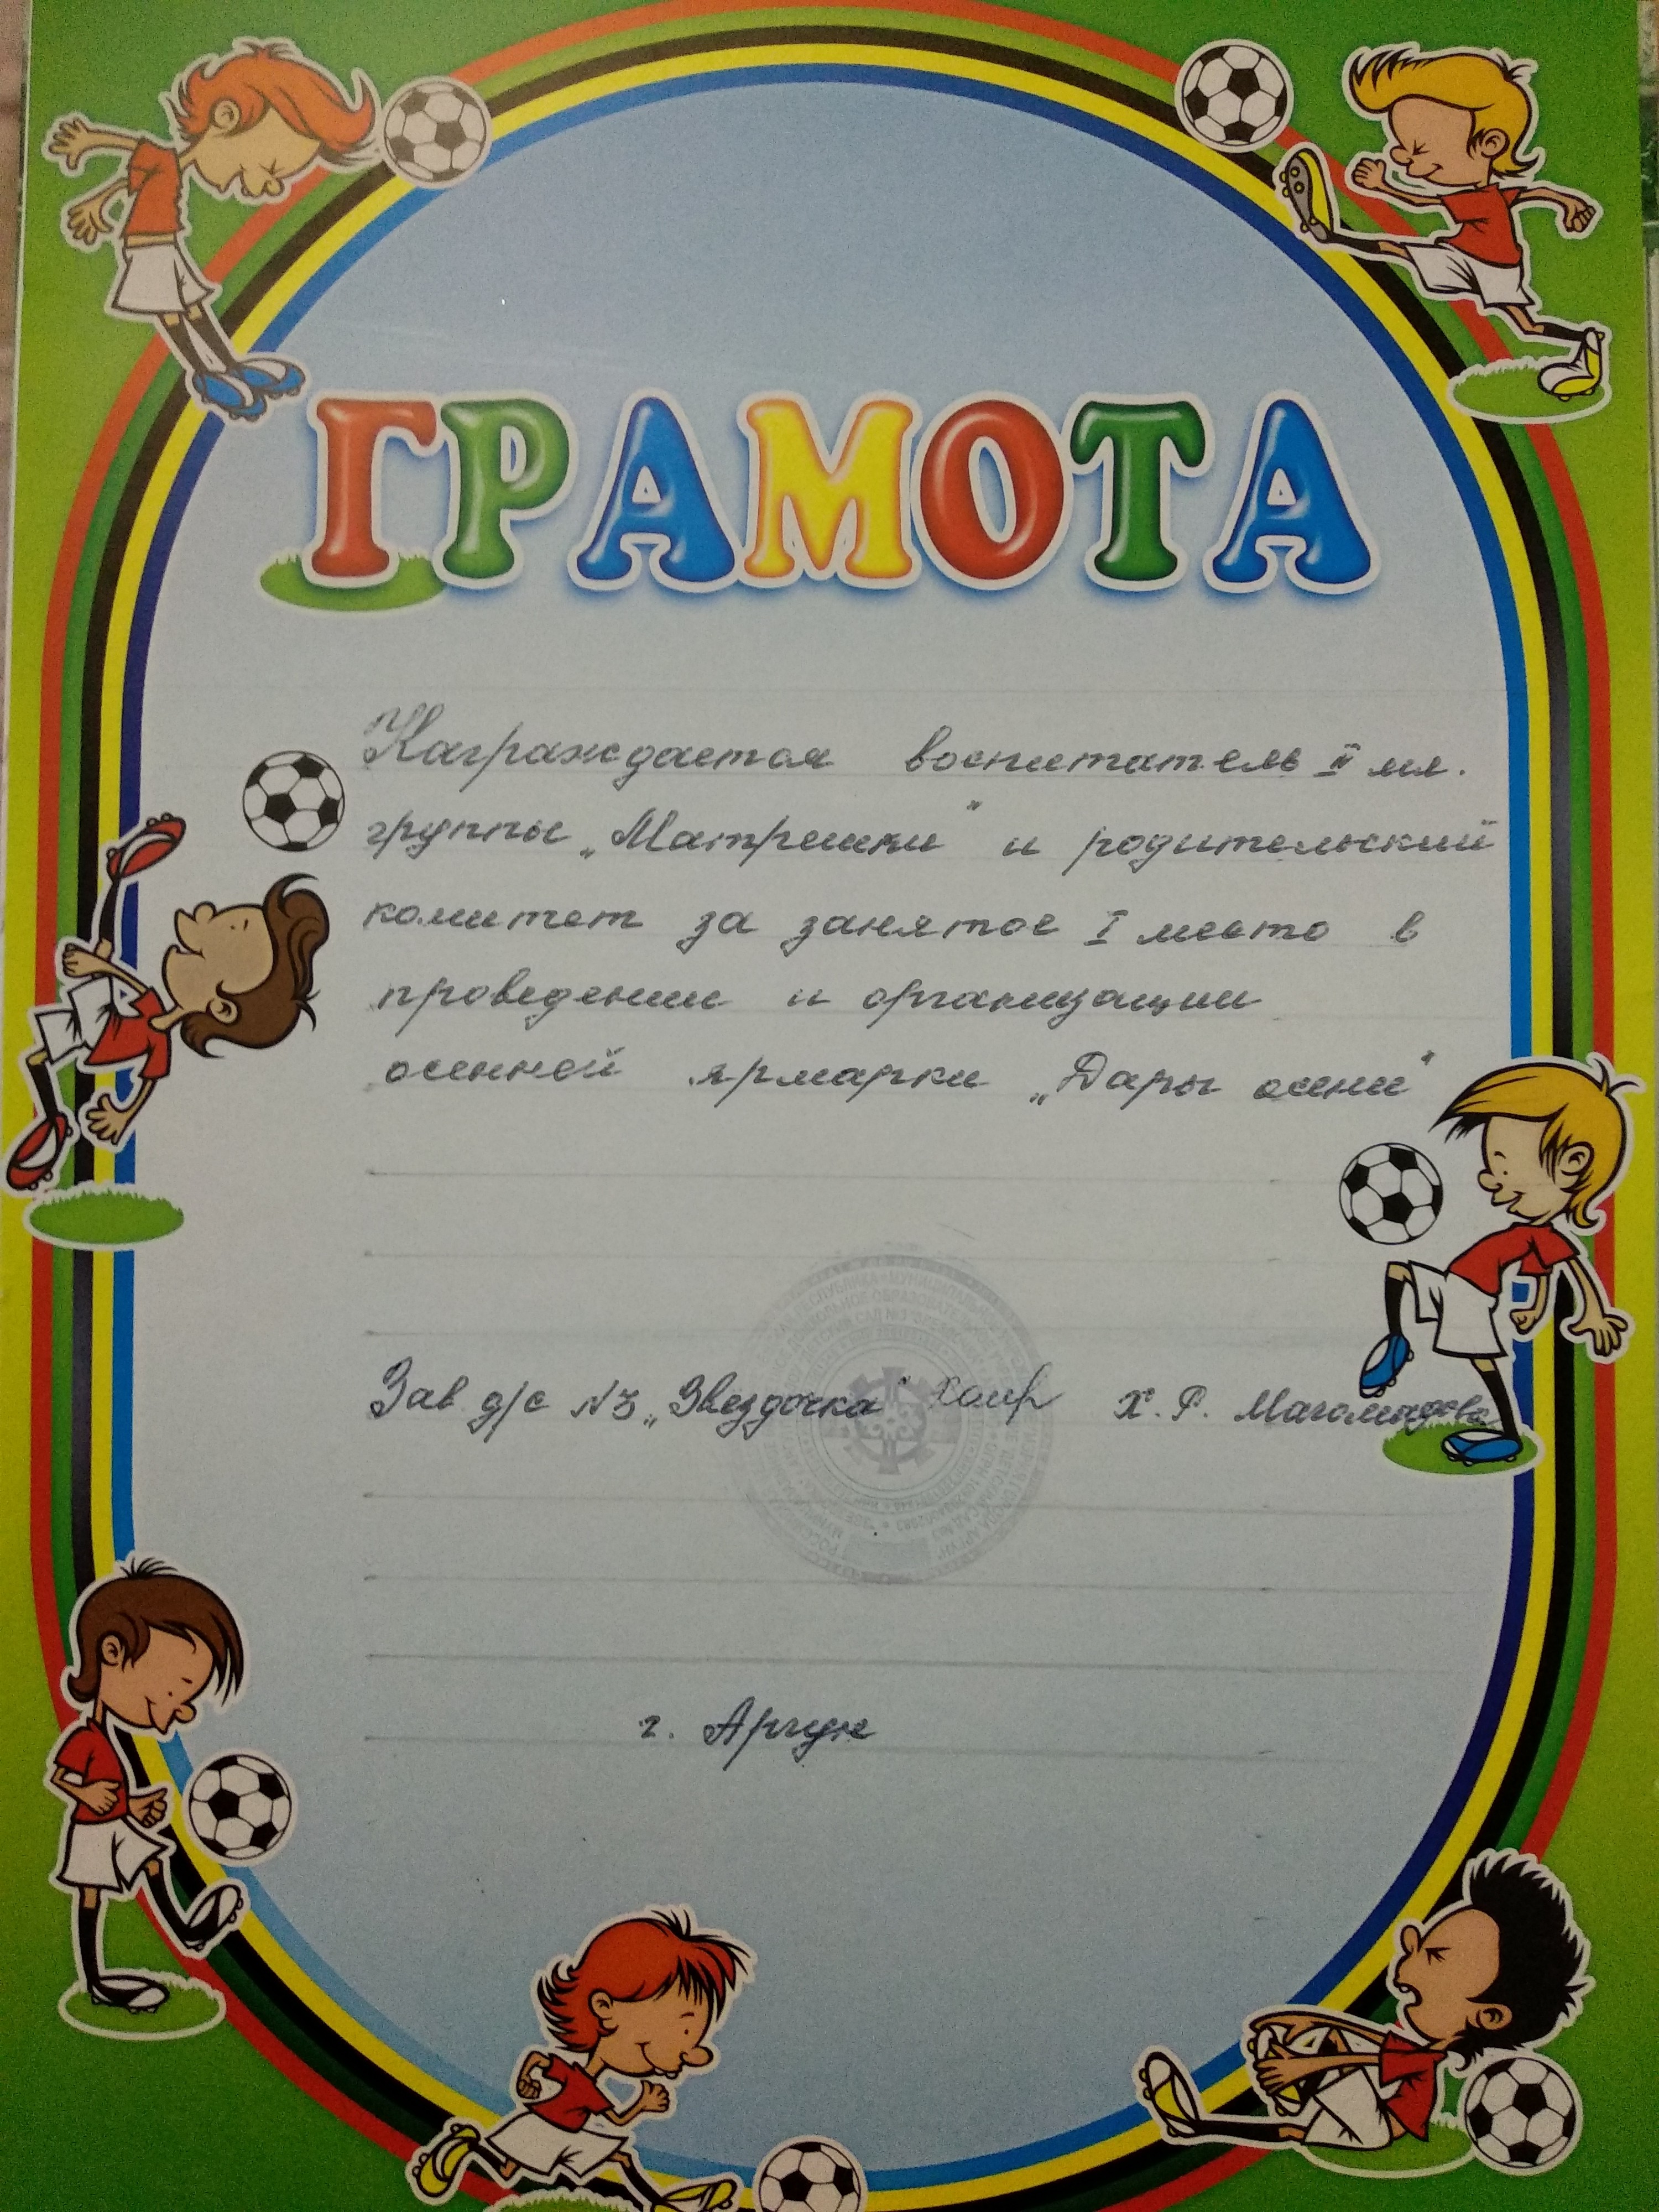 ГРАМОТА
Награждается воспитатель II мл.
группы „Матрешки" и родительский
комитет за занятое I место в
проведении и организации
осенней ярмарки „Дары осени"
Зав д/с №3 „Звездочка" Х. Р. Магомадова
г. Аргун